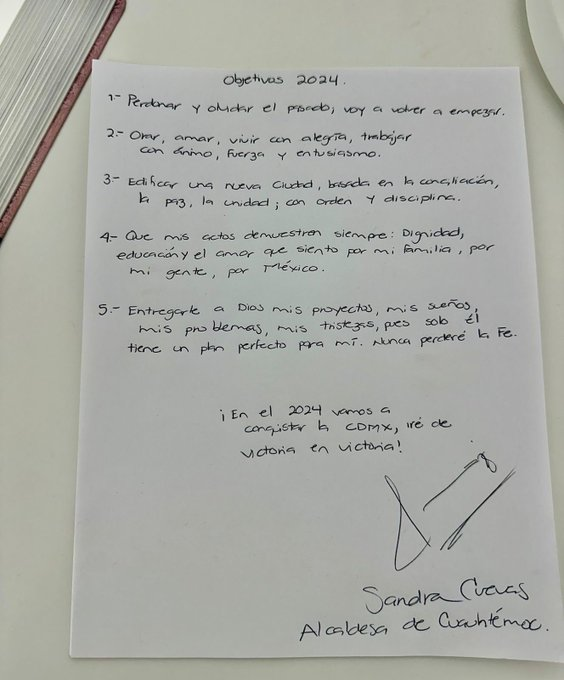 Objetivos 2024.
1.- Perdonar y olvidar el pasado, voy a volver a empezar.
2.- Orar, amar, vivir con alegría, trabajar
con ánimo, fuerza y entusiasmo.
3.- Edificar una nueva Ciudad, basada en la conciliación,
la paz, la unidad; con orden y disciplina.
4.- Que mis actos demuestren siempre: Dignidad,
educación y el amor que siento por mi familia, por
mi gente, por México.
5.- Entregarle a Dios mis proyectos, mis sueños,
mis problemas, mis tristezas, pues solo Él
tiene un plan perfecto para mí. Nunca perderé la Fe.
¡En el 2024 vamos a
conquistar la CDMX, iré de
victoria en victoria!
Sandra Cuevas
Alcaldesa de Cuauhtémoc.